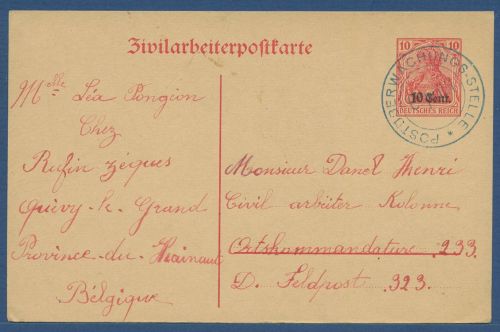 Zivilarbeiterpostkarte
10 10
10 Cent.
DEUTSCHES REICH
POSTÜBERWACHUNGS-STELLE *
Melle Léa Pongion
Chez
Rufin Zéques
Quévy-le-Grand
Province du Hainaut
Bélgique
Monsieur Danel Henri
Civil arbeiter Kolonne
Ortskommandature 233
D. Feldpost 323.